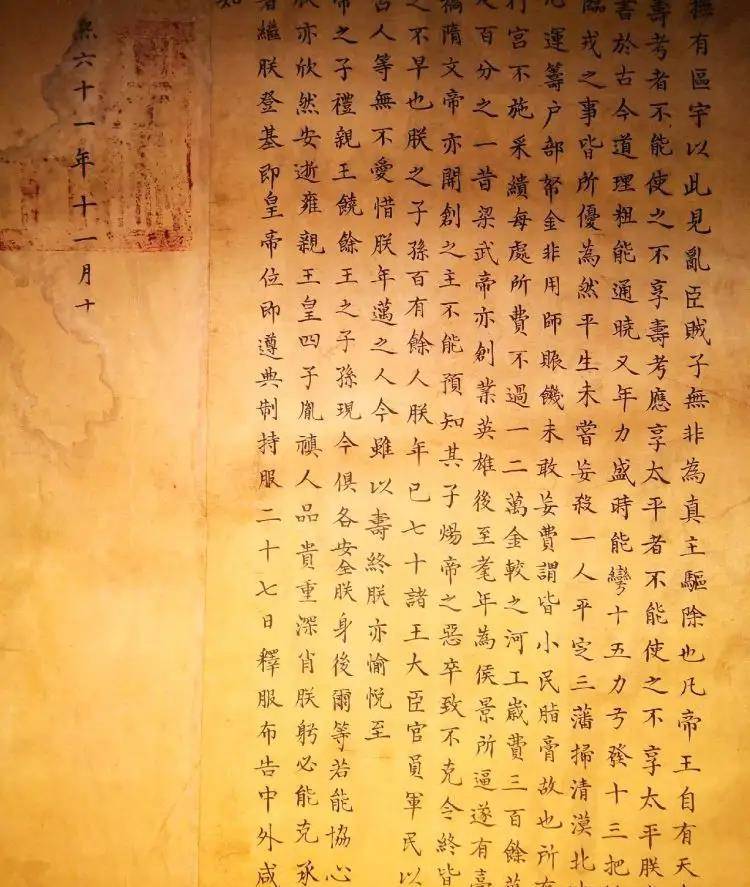 撫有區宇以此見亂臣賊子無非為真主驅除也凡帝王自有天
壽考者不能使之不享壽考應享太平者不能使之不享太平朕
書於古今道理粗能通曉又年力盛時能彎十五力弓發十三把
臨戎之事皆所優為然平生未嘗妄殺一人平定三藩掃清漠北
運籌户部帑金非用師賑饑未敢妄費謂皆小民脂膏故也所有
行宮不施采繢每處所費不過一二萬金較之河工歲費三百餘萬
及百分之一昔梁武帝亦創業英雄後至耄年為侯景所逼遂有臺
禍隋文帝亦開創之主不能預知其子煬帝之惡卒致不克令終皆
之不早也朕之子孫百有餘人朕年已七十諸王大臣官員軍民以
古人等無不愛惜朕年邁之人今雖以壽終朕亦愉悅至
帝之子禮親王饒餘王之子孫現今俱各安全朕身後爾等若能協心
朕亦欣然安逝雍親王皇四子胤禛人品貴重深肖朕躬必能克承
著繼朕登基即皇帝位即遵典制持服二十七日釋服布告中外咸
知
熙六十一年十一月十